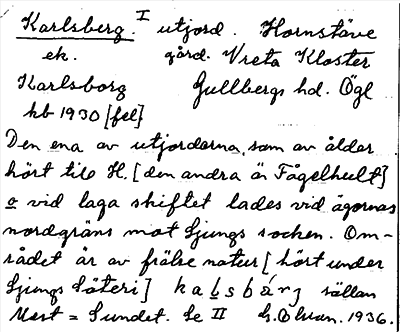 Karlsberg. I utjord. Hornstäve
ek. gård. Vreta Kloster
Karlsborg Gullbergs hd. Ögl
kb 1930 [fel]
Den ena av utjordarna, som av ålder
hört till H. [den andra är Fågelhult]
o vid laga skiftet lades vid ägornas
nordgräns mot Ljungs socken. Om-
rådet är av frälse natur [hört under
Ljungs Säteri] sällan
Mest = Sundet. Se II 1936.